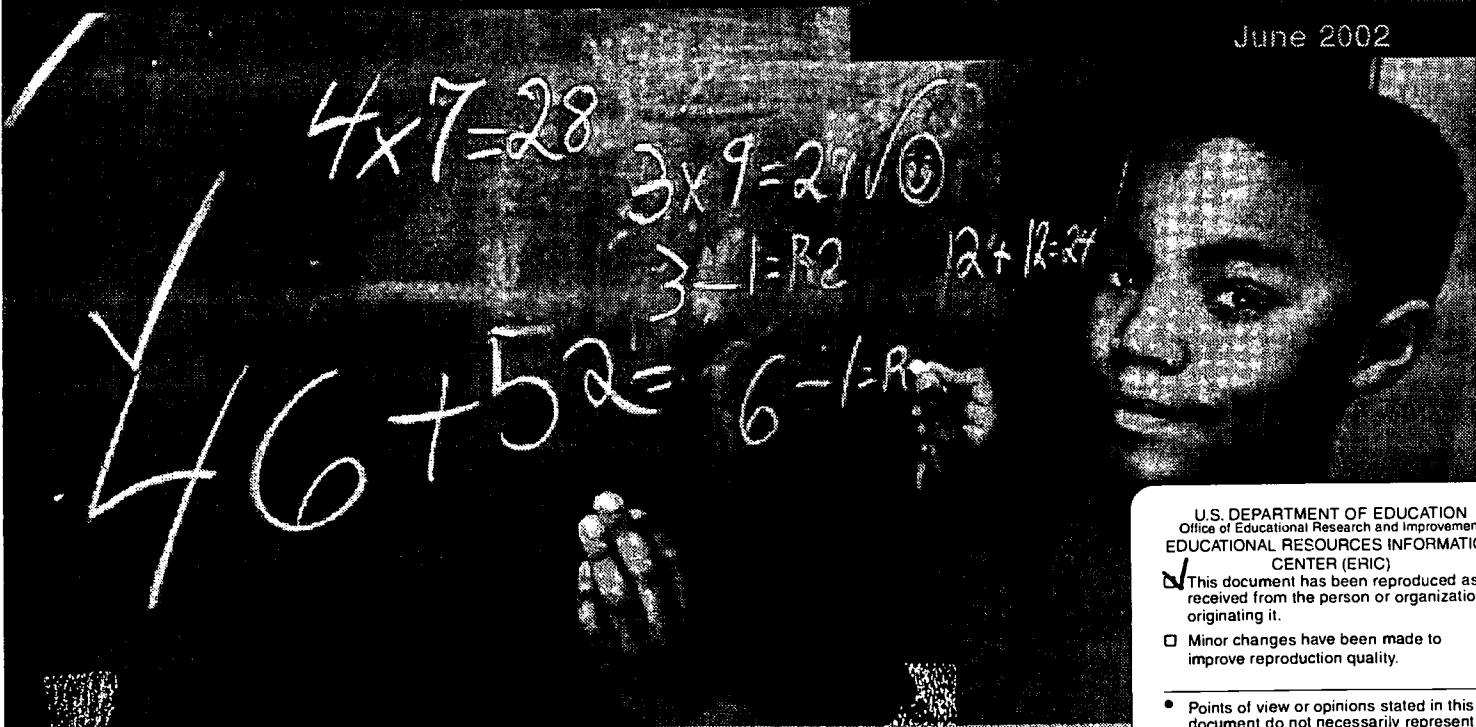 June 2002
4x7=28
3x9=27√
3-1=R2
12+12=24
46+52=
6-1=R
U.S. DEPARTMENT OF EDUCATION
Office of Educational Research and Improvemen
EDUCATIONAL RESOURCES INFORMATIO
CENTER (ERIC)
This document has been reproduced as
received from the person or organizatio
originating it.
Minor changes have been made to
improve reproduction quality.
• Points of view or opinions stated in this
document do not necessarily represent